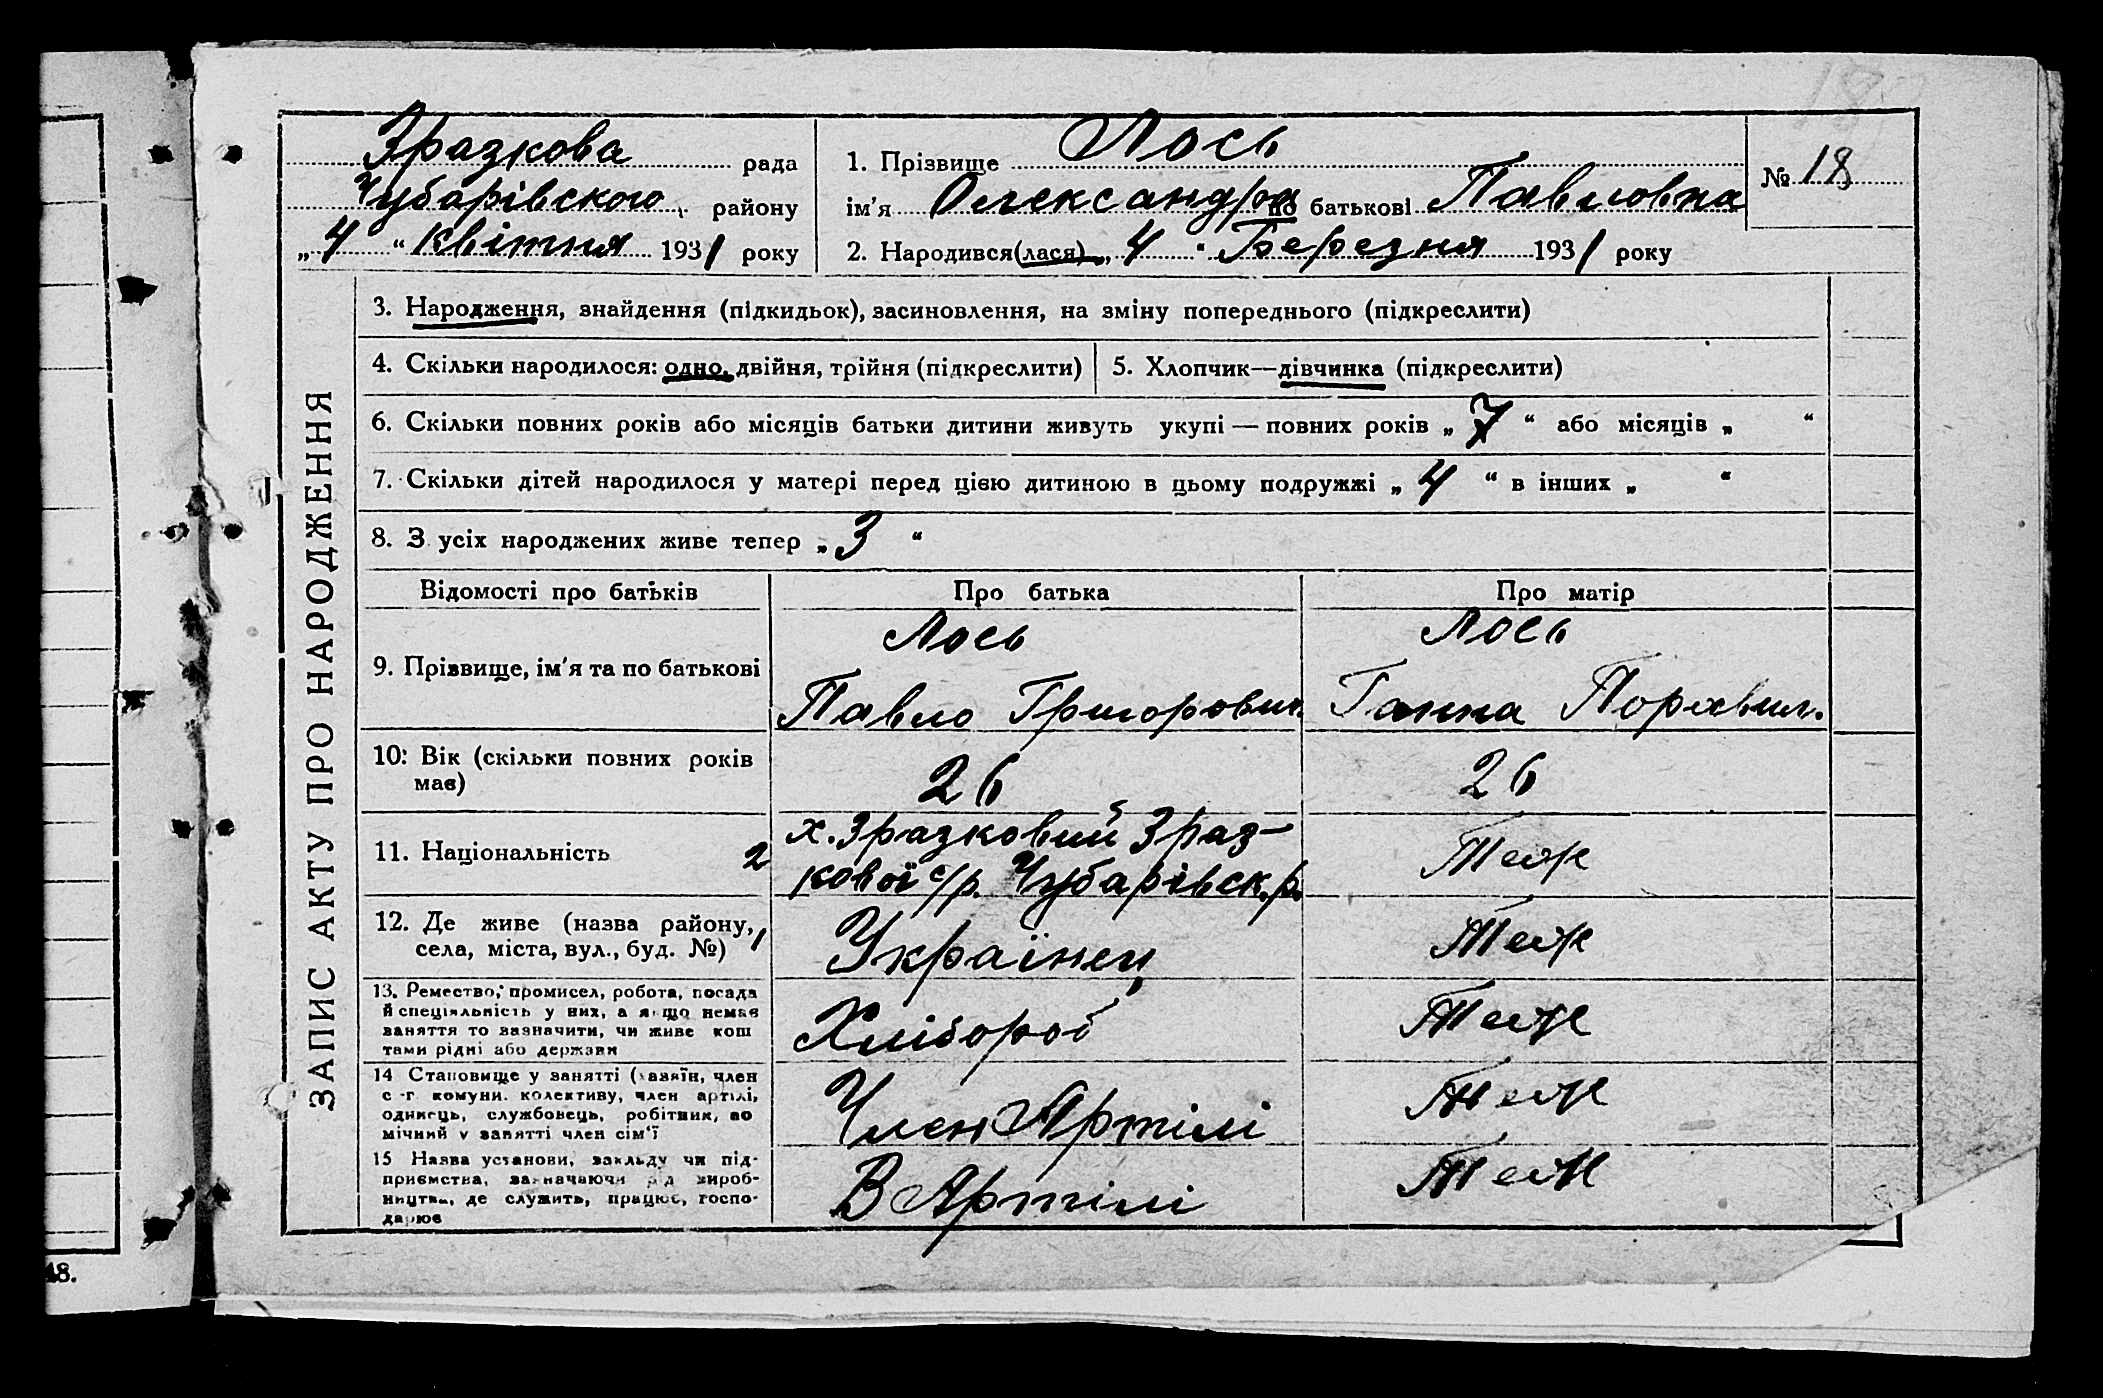 Зразкова рада
Чубарівского району
„4“ квітня 1931 року
1. Прізвище Лось
ім'я Олександра по батькові Павловна
2. Народився(лася) „4“ Березня 1931 року
№ 18
ЗАПИС АКТУ ПРО НАРОДЖЕННЯ
3. Народження, знайдення (підкидьок), засиновлення, на зміну попереднього (підкреслити)
4. Скільки народилося: одно, двійня, трійня (підкреслити)
5. Хлопчик—дівчинка (підкреслити)
6. Скільки повних років або місяців батьки дитини живуть укупі — повних років „7“ або місяців „ “
7. Скільки дітей народилося у матері перед цією дитиною в цьому подружжі „4“ в інших „ “
8. З усіх народжених живе тепер „3“
Відомості про батьків
Про батька
Про матір
9. Прізвище, ім'я та по батькові
Лось
Павло Григорович.
Лось
Ганна
10. Вік (скільки повних років
має)
26
26
11. Національність 2
х. Зразковий Зраз-
кової с/р. Чубарівск. р.
Теж
12. Де живе (назва району, 1
села, міста, вул., буд. №)
Українец
Теж
13. Ремество, промисел, робота, посада
й спеціяльність у них, а якщо немає
заняття то зазначити, чи живе кош
тами рідні або держави
Хлібороб
Теж
14 Становище у занятті (хазяїн, член
с -г. комуни. колективу, член артілі,
одинець, службовець, робітник, по
мічний у занятті член сім'ї
Член Артілі
Теж
15 Назва установи, закладу чи під-
приємства, зазначаючи рід вироб-
ництва, де служить, працює, госпо-
дарює
В Артілі
Теж
48.